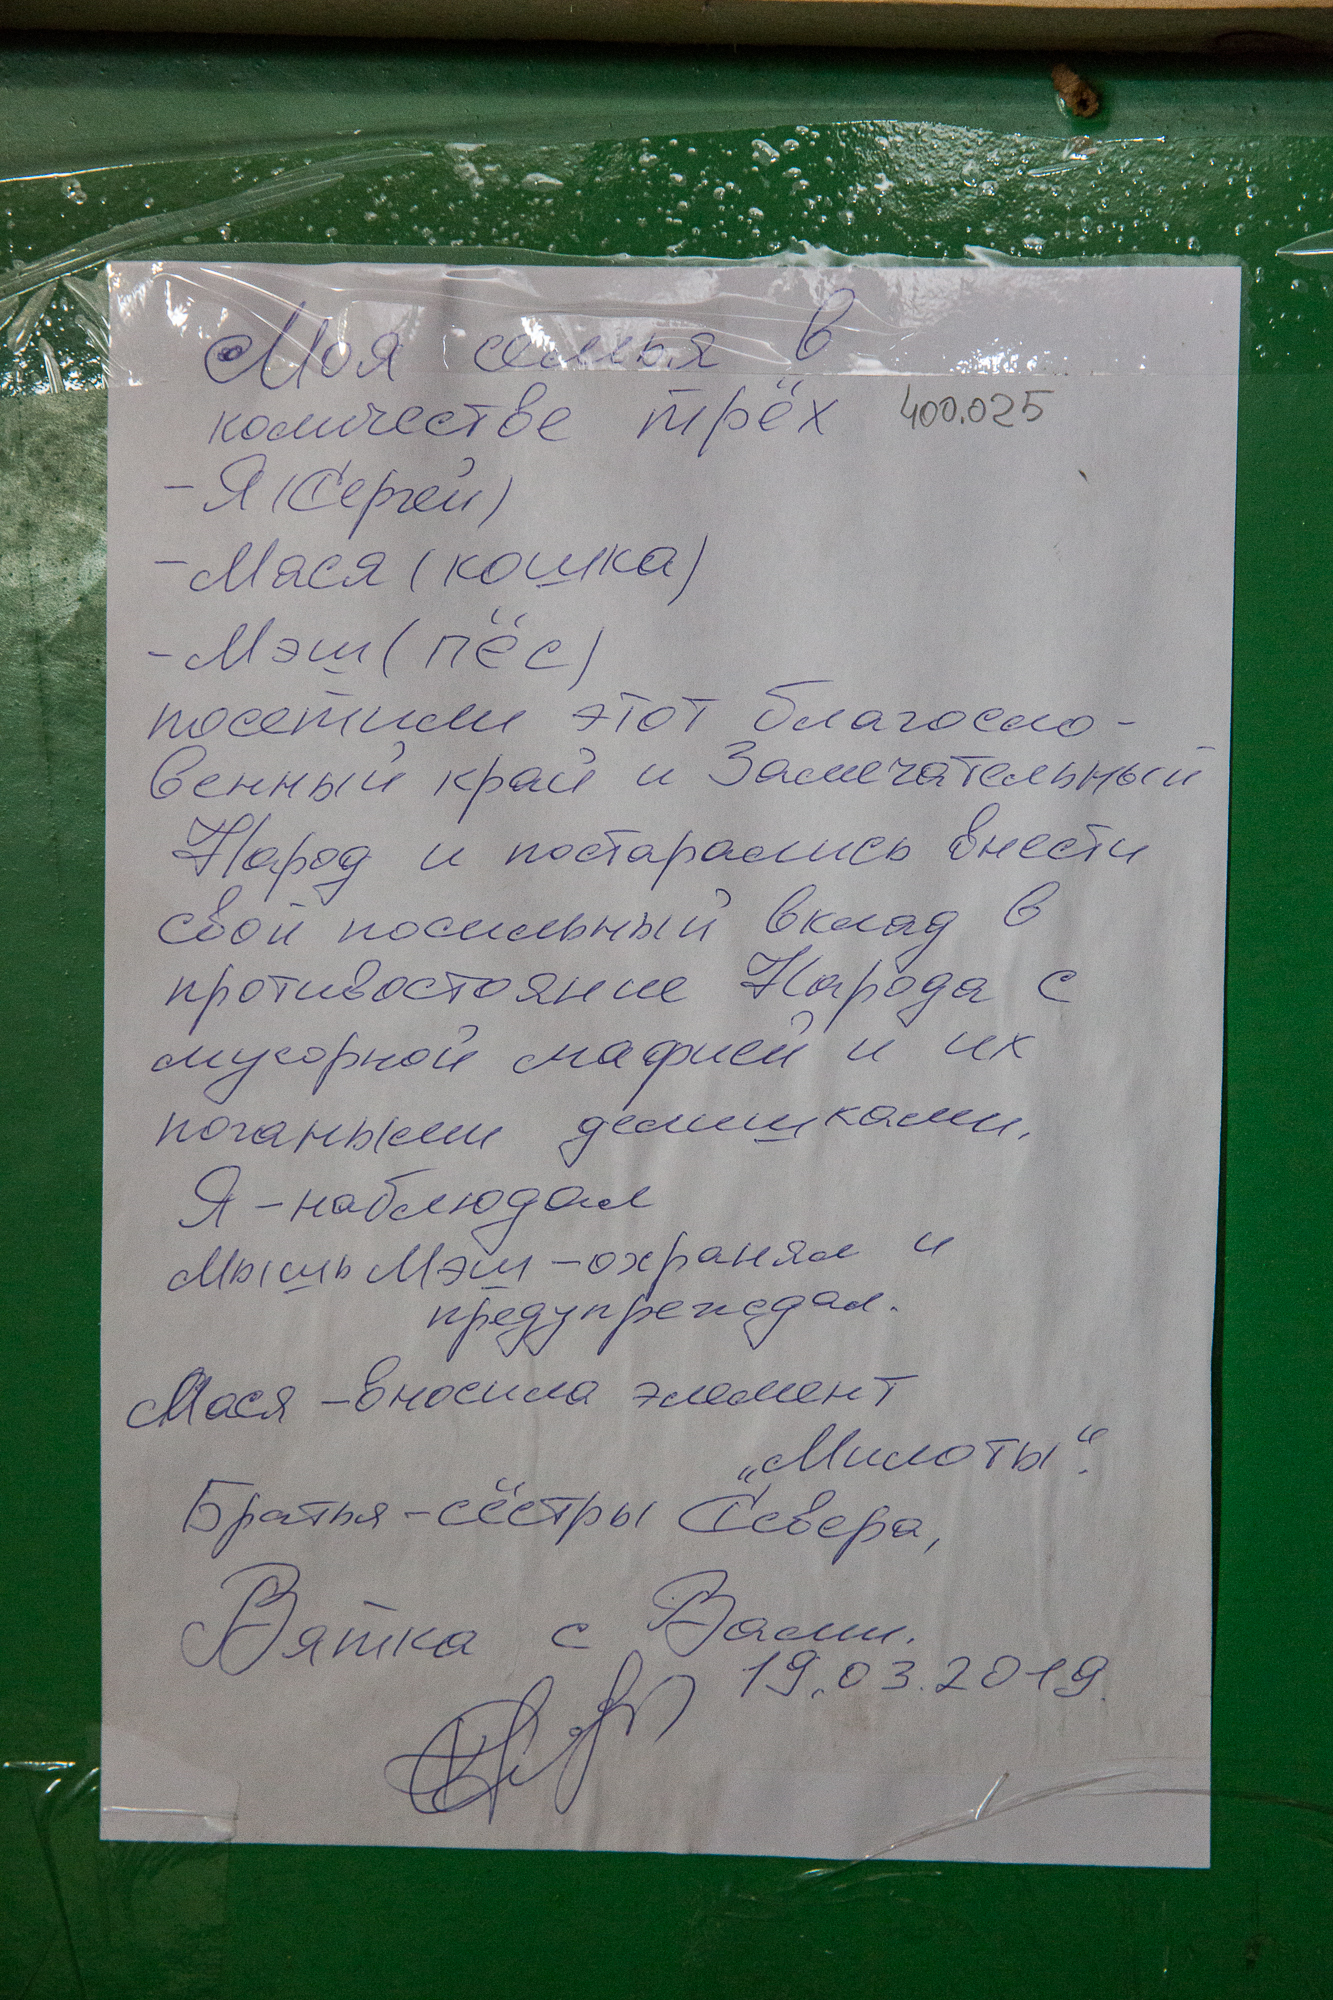 Моя семья в
количестве трёх 400.025
- Я (Сергей)
- Мася (кошка)
- Мэш (пёс)
посетили этот благосло-
венный край и Замечательный
Народ и постарались внести
свой посильный вклад в
противостояние Народа с
мусорной мафией и их
погаными делишками.
Я - наблюдал
Мышь Мэш - охранял и
предупреждал.
Мася - вносила элемент
„Милоты“.
Братья - сёстры Севера,
Вятка с Вами.
19.03.2019